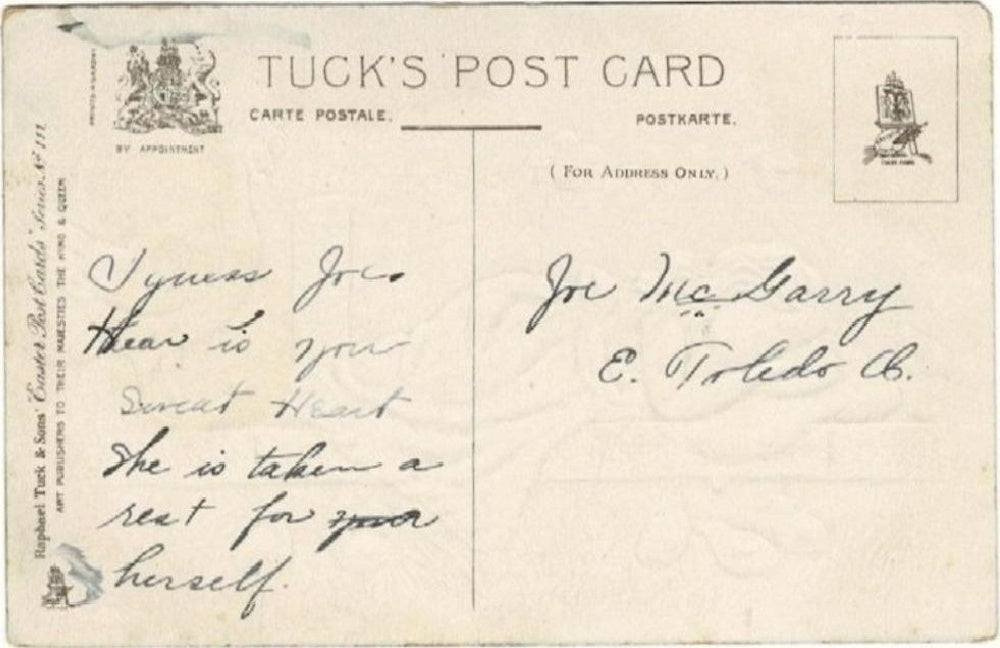 TUCK'S POST CARD
CARTE POSTALE.
POSTKARTE.
BY APPOINTMENT
(FOR ADDRESS ONLY.)
Raphael Tuck & Sons' "Easter Post Cards" Series No 111
ART PUBLISHERS TO THEIR MAJESTIES THE KING & QUEEN
Joe
Hear is your
Sweat Heart
She is taken a
rest for your
herself.
Joe McGarry
E. Toledo O.